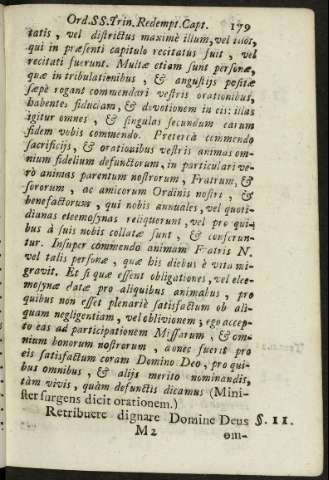 Ord.SS.Trin.Redempt.Capt. 179
tatis, vel districtus maximè illum, vel illos,
qui in præsenti capitulo recitatus fuit, vel
recitati fuerunt. Multæ etiam sunt personæ,
quæ in tribulationibus, & angustijs positæ
sæpè rogant commendari vestris orationibus,
habentes fiduciam, & devotionem in eis: illas
igitur omnes, & singulas secundum earum
fidem vobis commendo. Pretereà commendo
sacrificijs, & orationibus vestris animas om-
nium fidelium defunctorum, in particulari ve-
rò animas parentum nostrorum, Fratrum, &
sororum, ac amicorum Ordinis nostri, &
benefactorum, qui nobis annuales, vel quoti-
dianas eleemosynas reliquerunt, vel pro qui-
bus à suis nobis collatæ sunt, & conferun-
tur. Insuper commendo animam Fratris N.
vel talis personæ, quæ his diebus è vita mi-
gravit. Et si quæ essent obligationes, vel elee-
mosynæ datæ pro aliquibus animabus, pro
quibus non esset plenariè satisfactum ob ali-
quam negligentiam, vel oblivionem; ego accep-
to eas ad participationem Missarum, & om-
nium bonorum nostrorum, donec fuerit pro
eis satisfactum coram Domino Deo, pro qui-
bus omnibus, & alijs merito nominandis,
tàm vivis, quàm defunctis dicamus (Mini-
ster surgens dicit orationem.)
Retribuere dignare Domine Deus §. II.
M2 om-